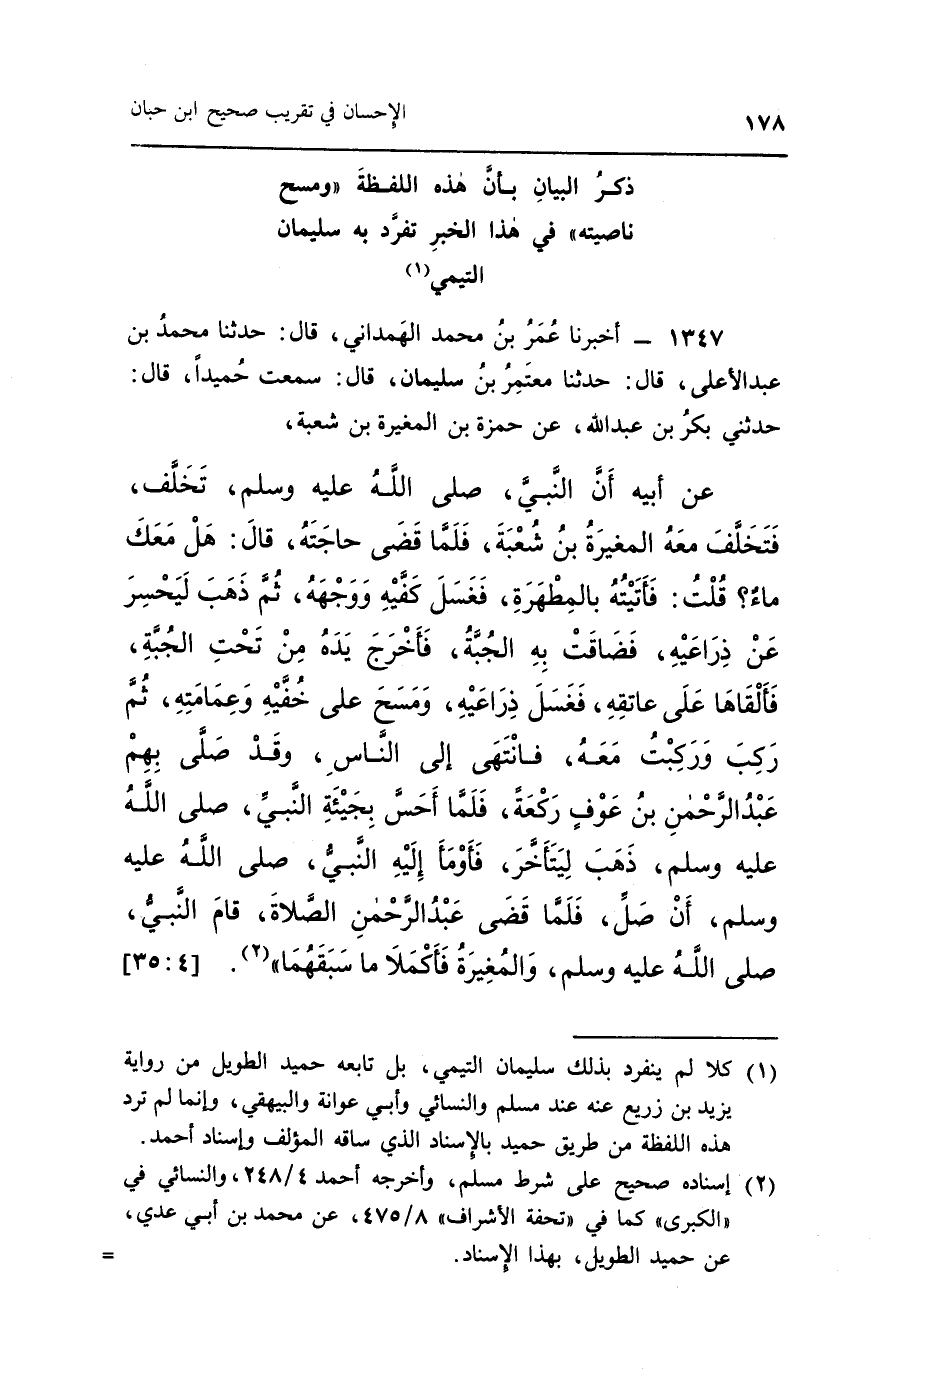 ١٧٨ الإحسان في تقريب صحيح ابن حبان
ذكرُ البيانِ بأنَّ هٰذه اللفظةَ «ومسح
ناصيته» في هٰذا الخبرِ تفرَّد به سليمان
التيمي(١)
١٣٤٧ ـ أخبرنا عُمَرُ بنُ محمد الهَمداني، قال: حدثنا محمدُ بن
عبدالأعلى، قال: حدثنا معتَمِرُ بنُ سليمان، قال: سمعت حُميداً، قال:
حدثني بكرُ بن عبدالله، عن حمزة بن المغيرة بن شعبة،
عن أبيه أَنَّ النَّبيَّ، صلى اللَّهُ عليه وسلم، تَخَلَّف،
فَتَخَلَّفَ معَهُ المغيرَةُ بنُ شُعْبَةَ، فَلَمَّا قَضَى حاجَتَهُ، قالَ: هَلْ مَعَكَ
ماءٌ؟ قُلْتُ: فَأَتَيْتُهُ بالمِطْهَرَةِ، فَغَسَلَ كَفَّيْهِ وَوَجْهَهُ، ثُمَّ ذَهَبَ لَيَحْسِرَ
عَنْ ذِرَاعَيْهِ، فَضَاقَتْ بِهِ الجُبَّةُ، فَأَخْرَجَ يَدَهُ مِنْ تَحْتِ الجُبَّةِ،
فَأَلْقَاهَا عَلَى عاتقِهِ، فَغَسَلَ ذِرَاعَيْهِ، وَمَسَحَ على خُفَّيْهِ وَعِمَامَتِهِ، ثُمَّ
رَكِبَ وَرَكِبْتُ مَعَهُ، فانْتَهَى إلى النَّاسِ، وقَدْ صَلَّى بِهِمْ
عَبْدُالرَّحْمٰنِ بنُ عَوْفٍ رَكْعَةً، فَلَمَّا أَحَسَّ بِجَيْئَةِ النَّبيِّ، صلى اللَّهُ
عليه وسلم، ذَهَبَ لِيَتَأَخَّرَ، فَأَوْمَأَ إلَيْهِ النَّبيُّ، صلى اللَّهُ عليه
وسلم، أَنْ صَلِّ، فَلَمَّا قَضَى عَبْدُالرَّحْمٰنِ الصَّلاةَ، قامَ النَّبيُّ،
صلى اللَّهُ عليه وسلم، وَالمُغِيرَةُ فَأَكْمَلَا ما سَبَقَهُمَا»(٢). [٤:٣٥]
(١) كلا لم ينفرد بذلك سليمان التيمي، بل تابعه حميد الطويل من رواية
يزيد بن زريع عنه عند مسلم والنسائي وأبي عوانة والبيهقي، وإنما لم ترد
هذه اللفظة من طريق حميد بالإسناد الذي ساقه المؤلف وإسناد أحمد.
(٢) إسناده صحيح على شرط مسلم، وأخرجه أحمد ٢٤٨/٤، والنسائي في
«الكبرى» كما في «تحفة الأشراف» ٤٧٥/٨، عن محمد بن أبي عدي،
عن حميد الطويل، بهذا الإسناد. =